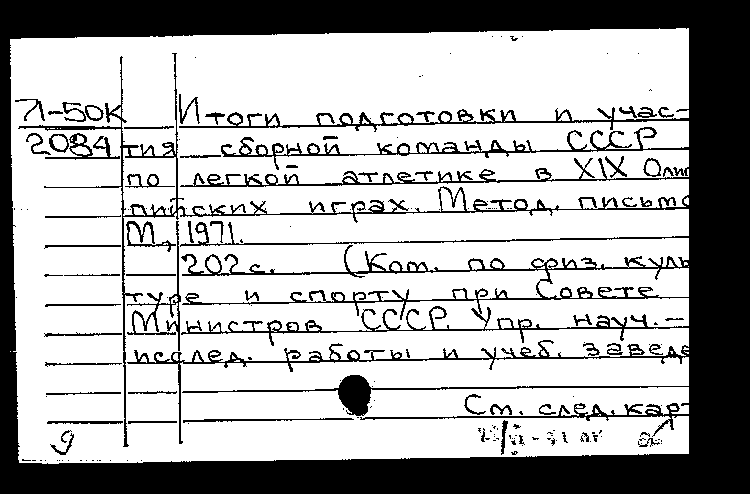 71-50К Итоги подготовки и учас-
2084 тия сборной команды СССР
по легкой атлетике в XIX Олим
пийских играх. Метод. письмо
М., 1971.
202 с. (Ком. по физ. куль
туре и спорту при Совете
Министров СССР. Упр. науч.-
исслед. работы и учеб. заведе
См. след. кар
9